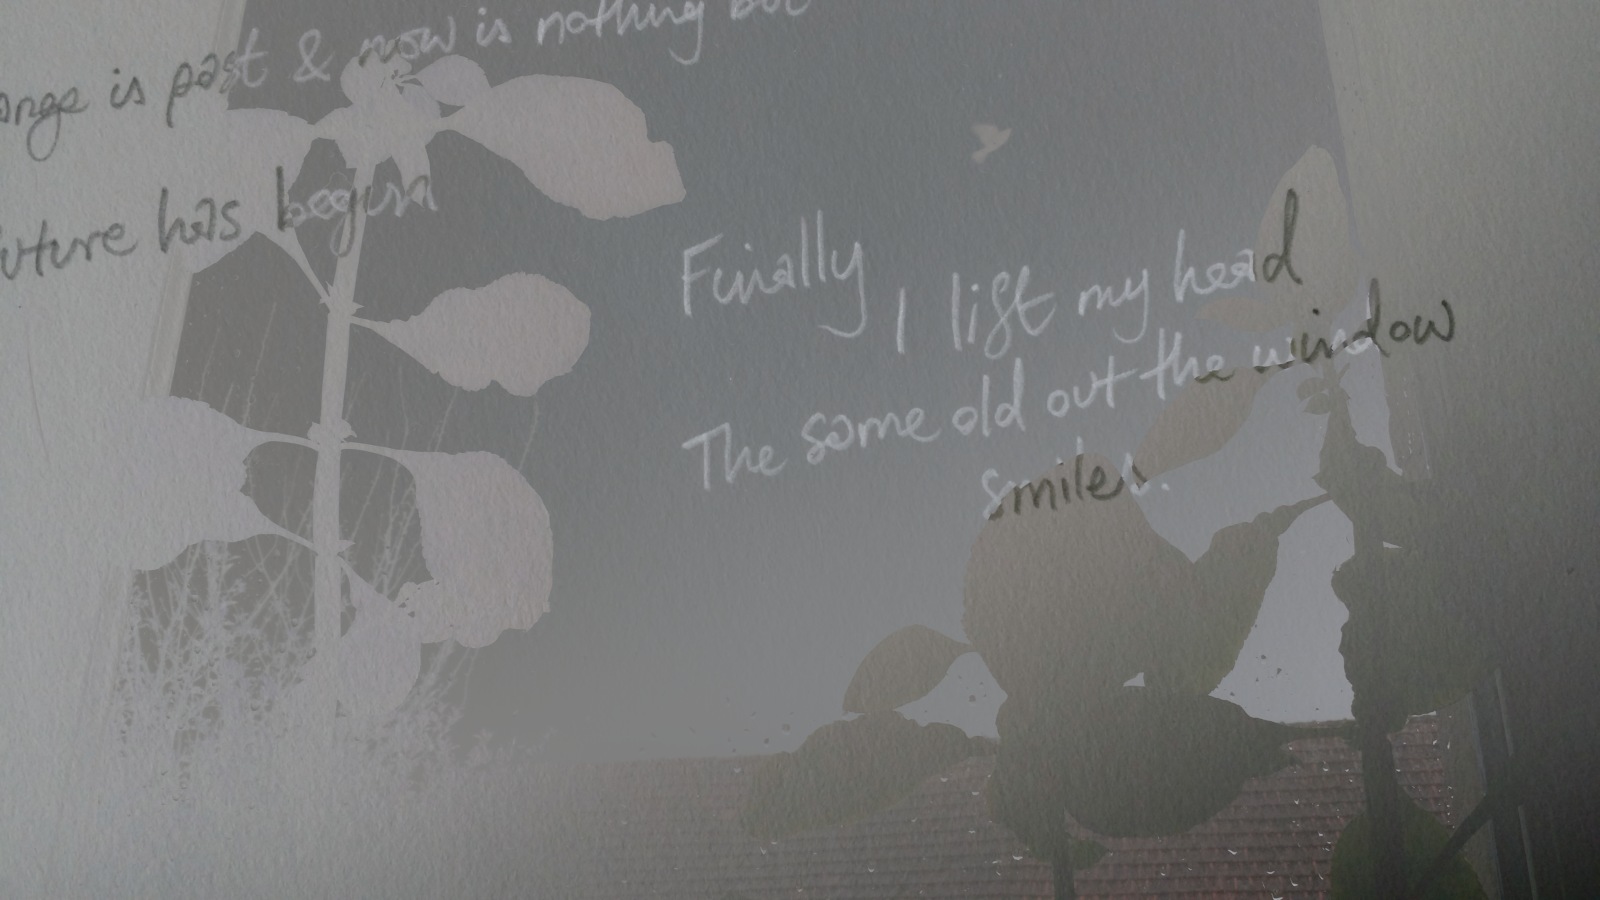 is past & now is nothing but
has begun
Finally
I lift my head
The same old out the window
smiles.